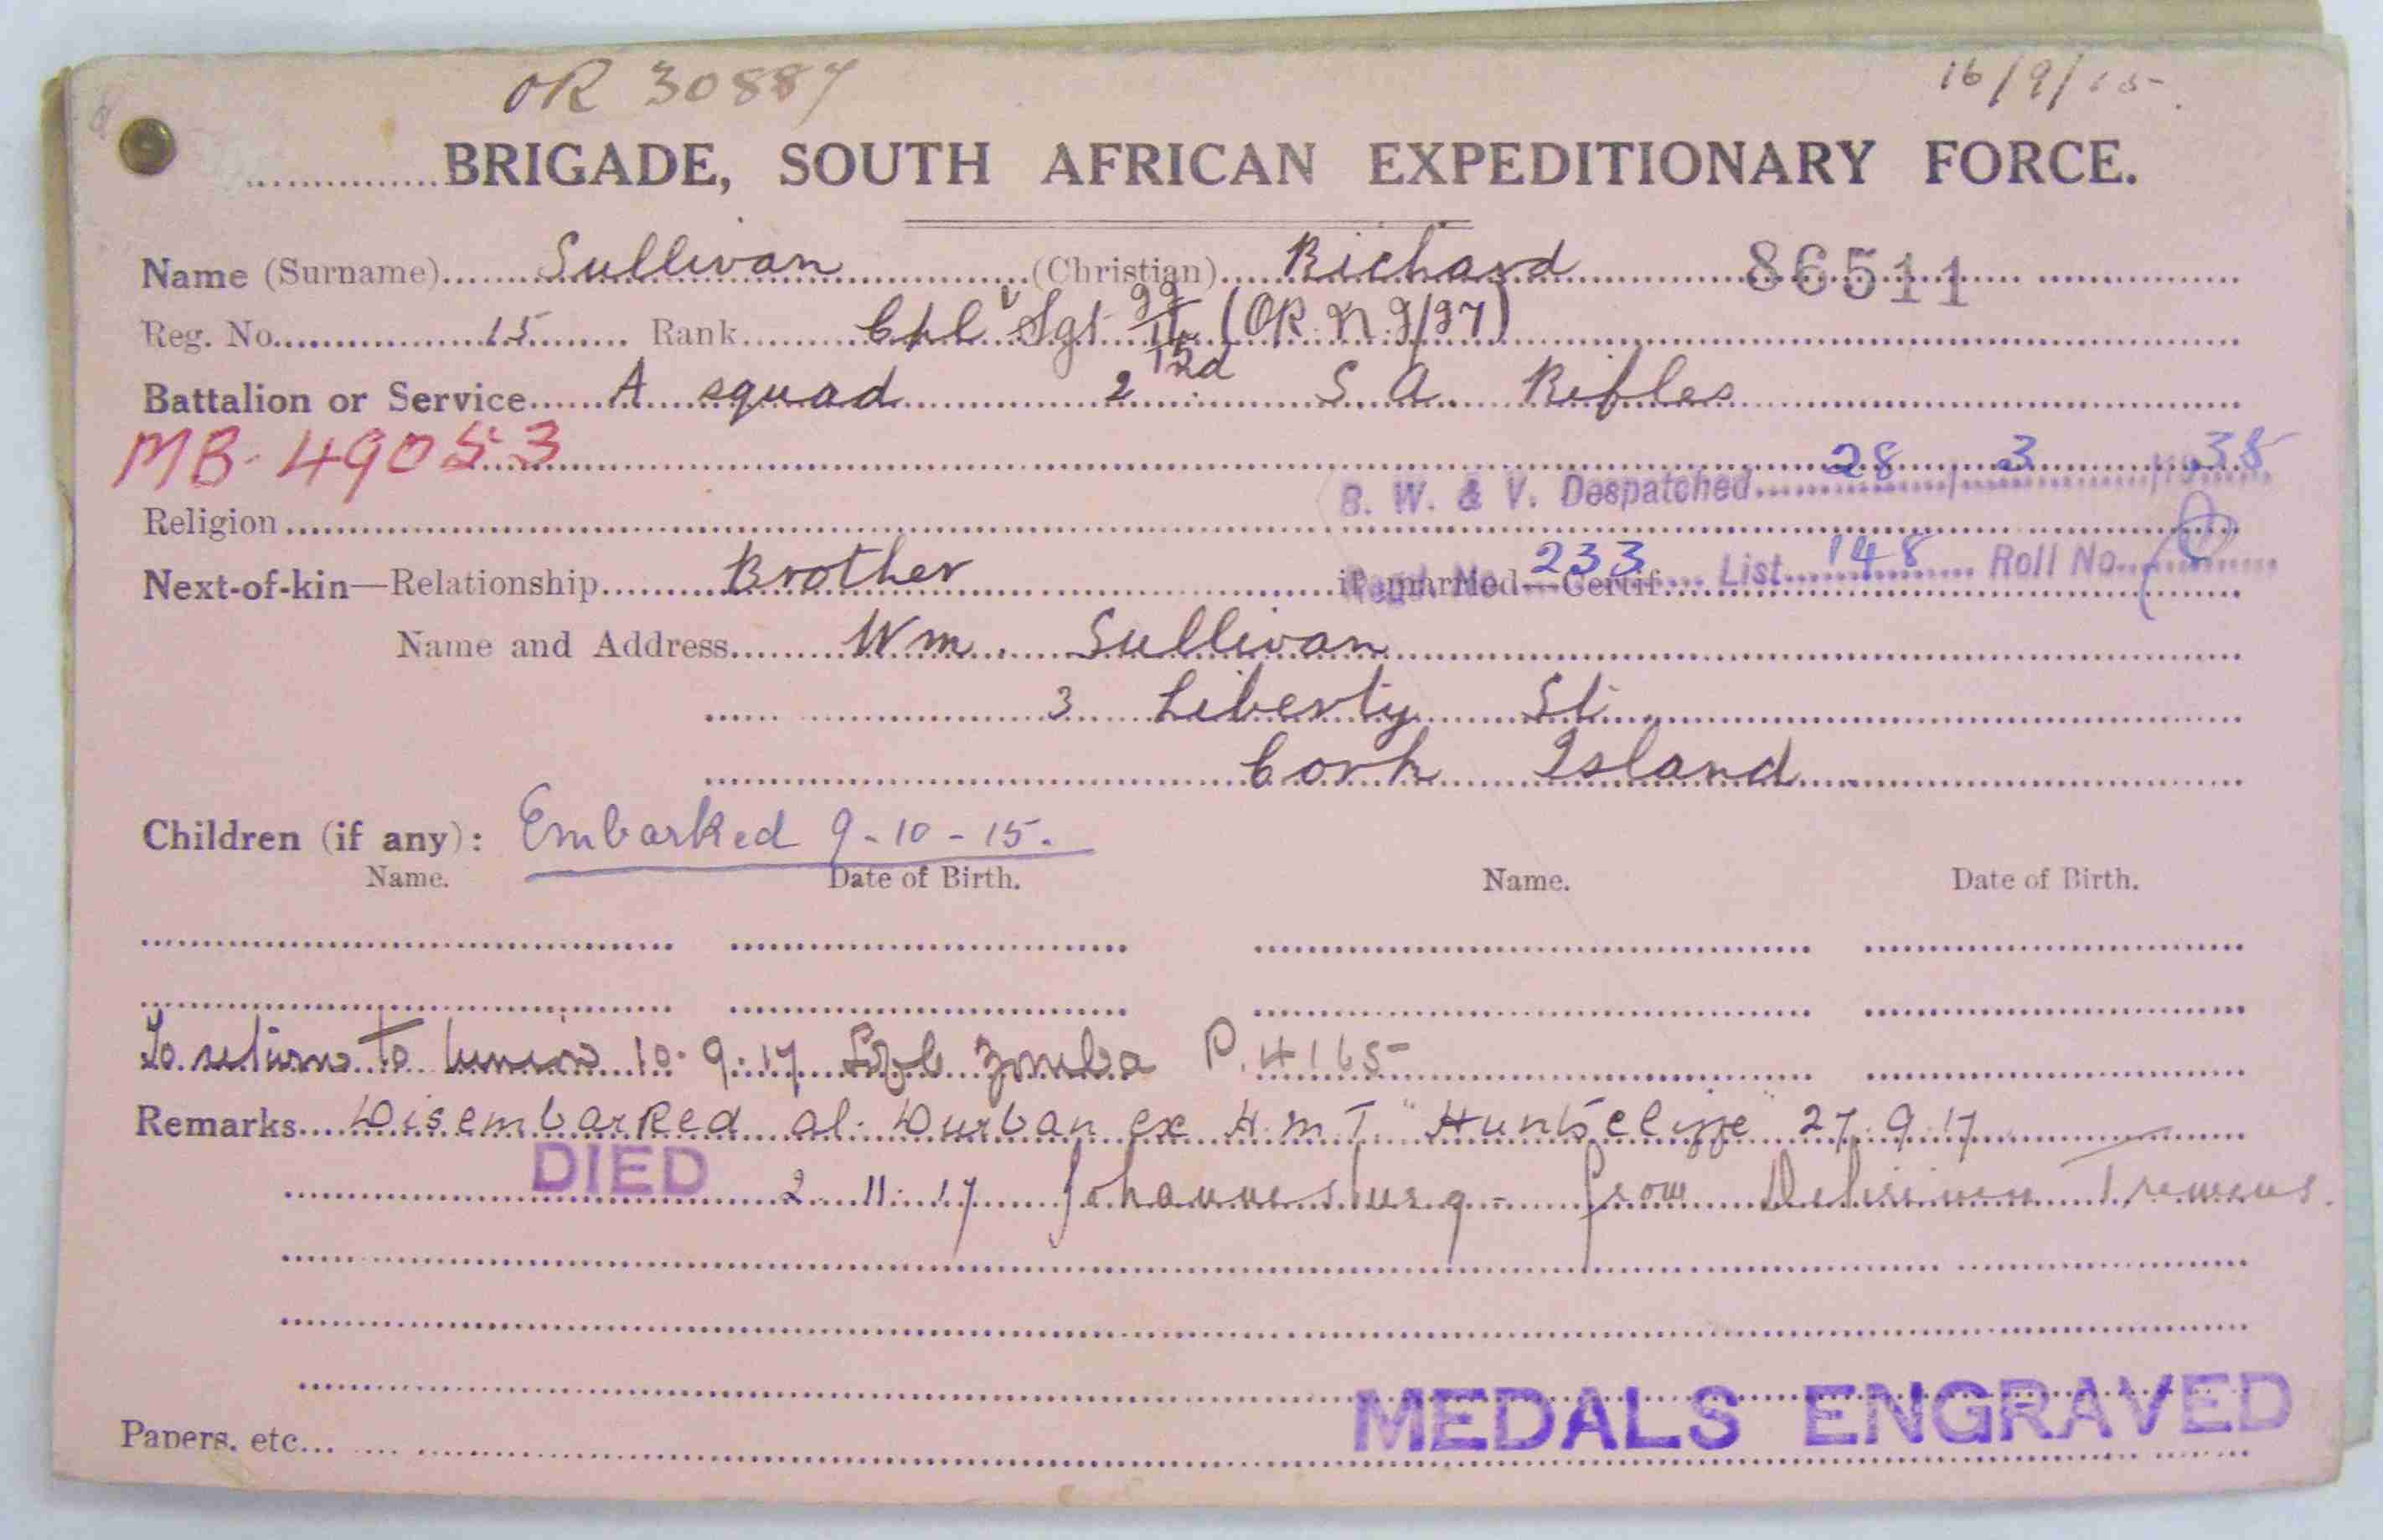 OR 30887 16/9/15.
BRIGADE, SOUTH AFRICAN EXPEDITIONARY FORCE.
Name (Surname) Sullivan (Christian) Richard 86511
Reg. No. 15 Rank Cpl Sgt (OR. N. 9/97)
Battalion or Service A squad 2nd S. A. Rifles
MB. 49053
B. W. & V. Despatched 28 / 3 / 1938
Religion
Next-of-kin—Relationship Brother if married—Certif. 233 List 148 Roll No.
Name and Address Wm. Sullivan
3 Liberty St.
Cork Island
Children (if any): Embarked 9-10-15.
Name. Date of Birth. Name. Date of Birth.
To return to Union 10.9.17 Zomba P. 4165
Remarks Disembarked at Durban ex H.M.T. "Huntscliffe" 27.9.17
DIED 2.11.17 Johannesburg - from Delirium Tremens.
MEDALS ENGRAVED
Papers, etc.